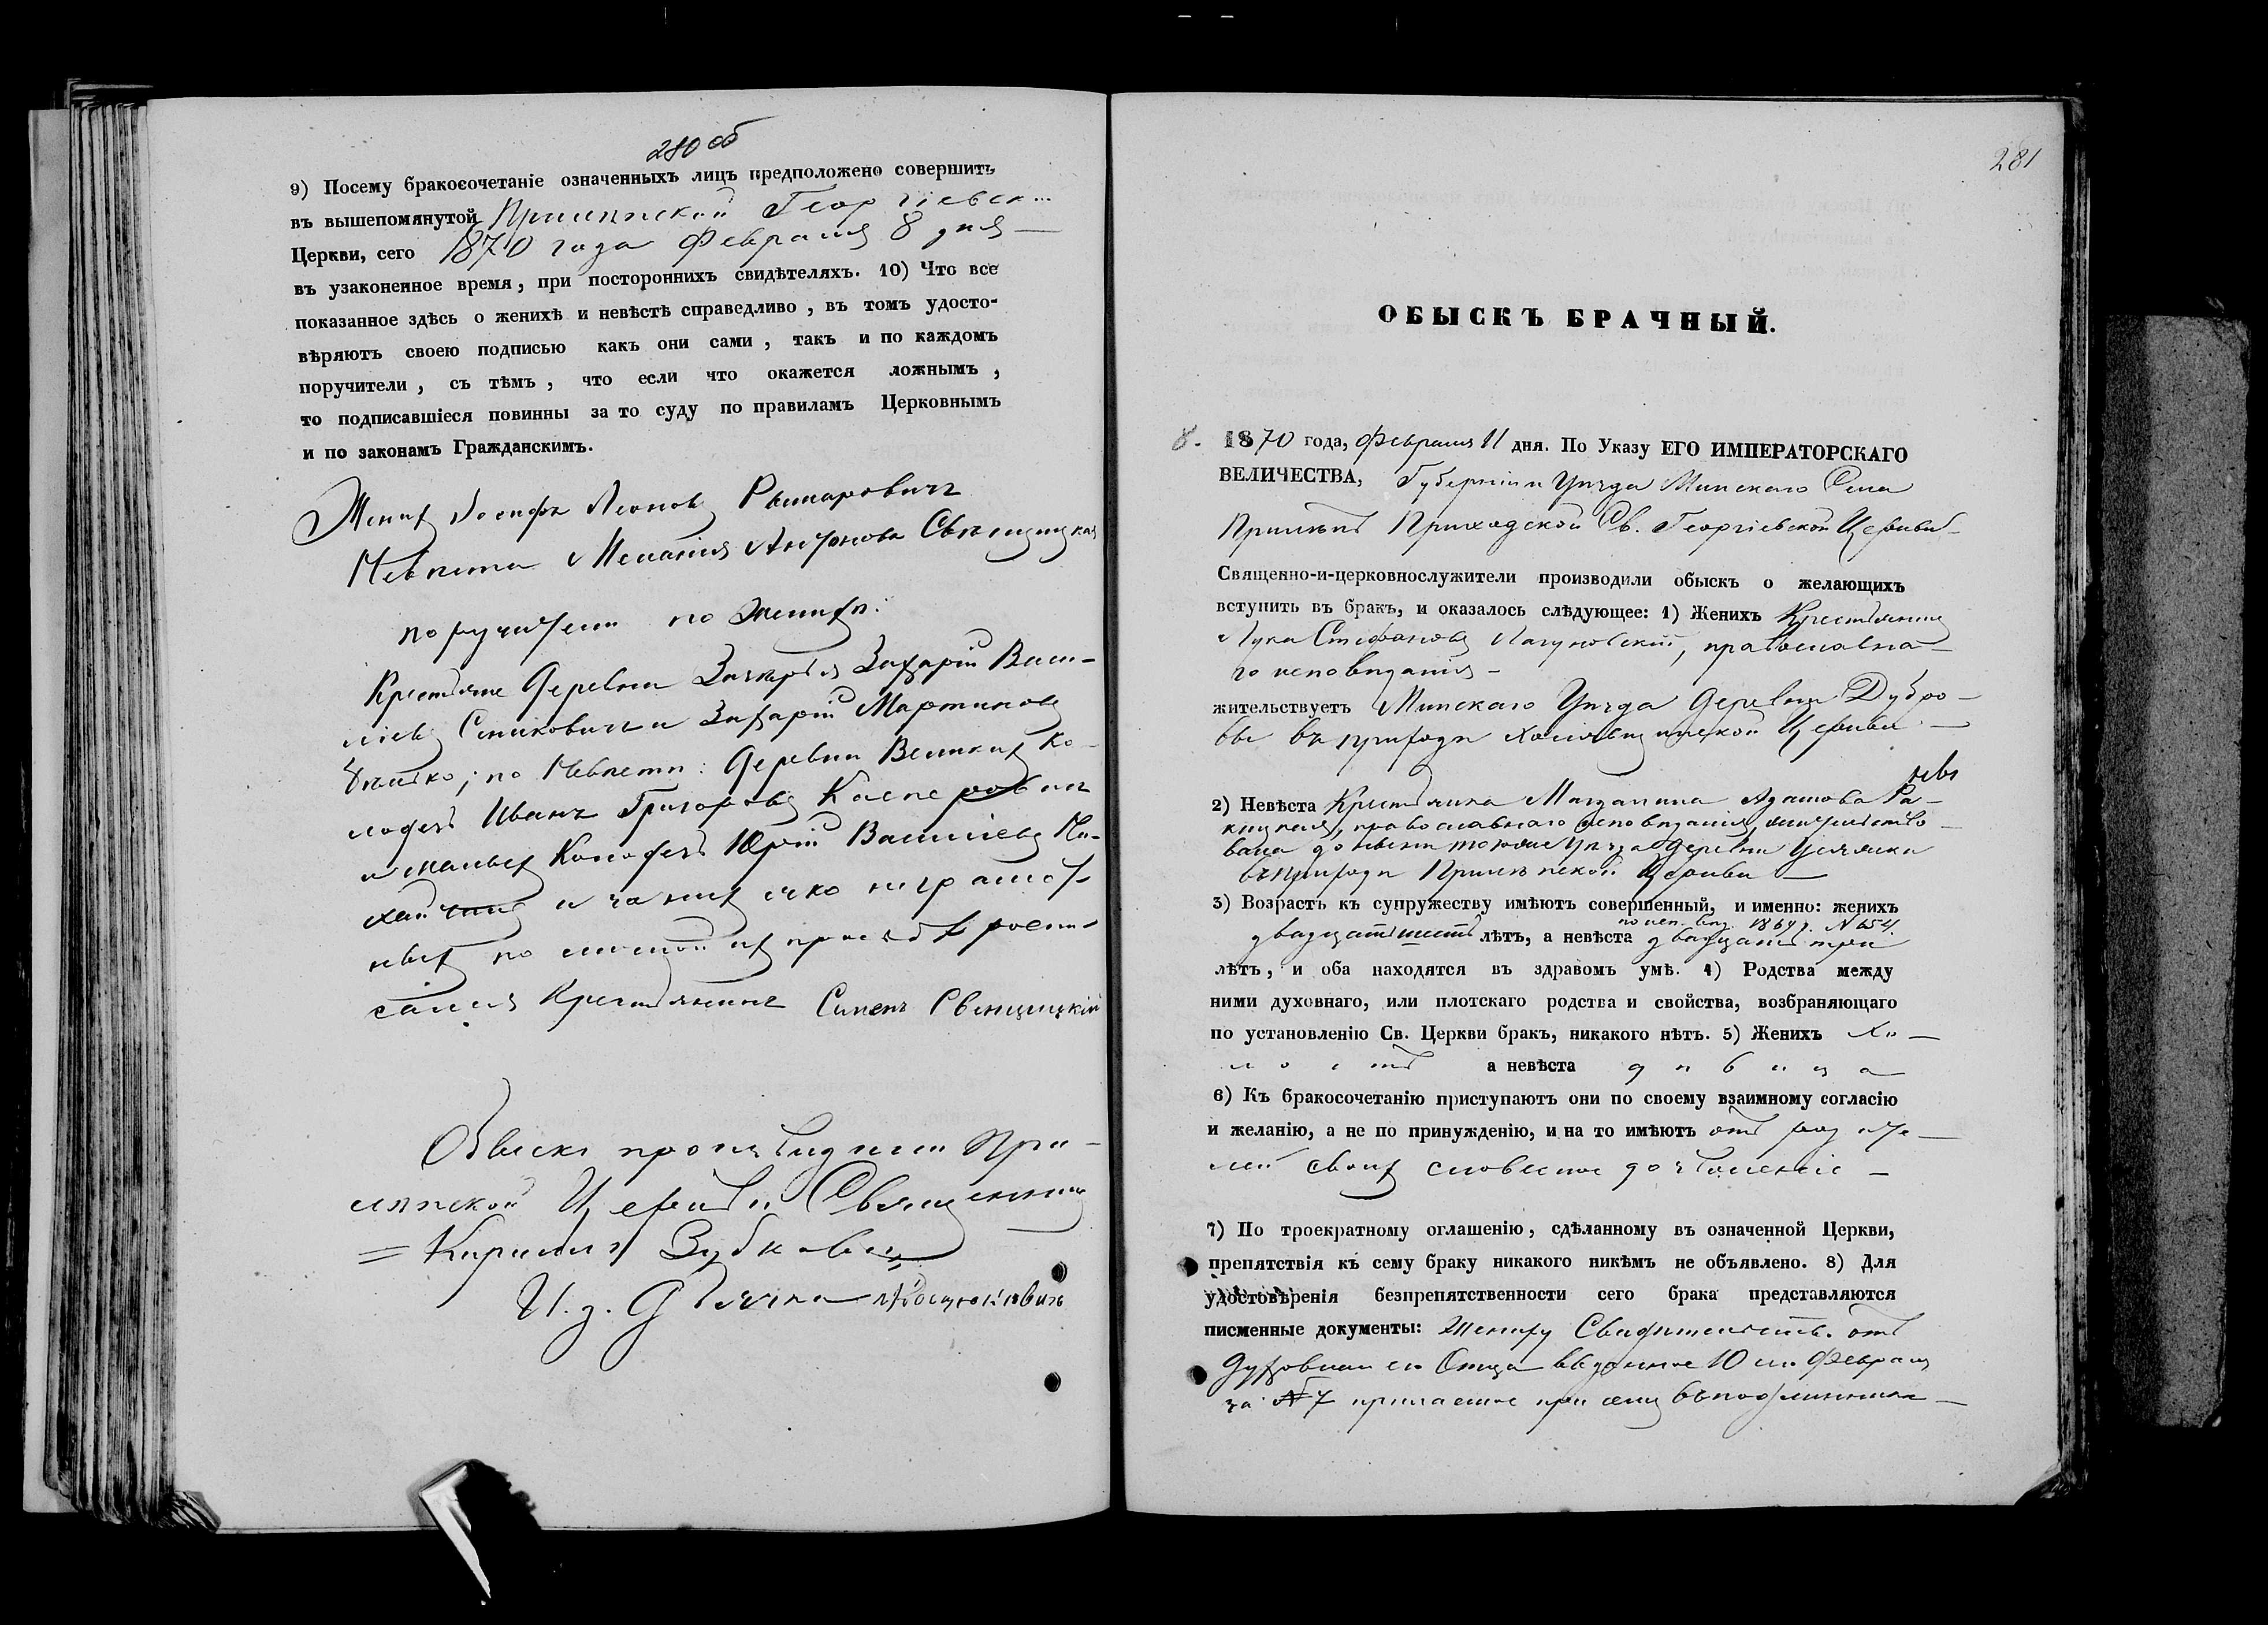 280 об
9) Посему бракосочетаніе означенныхъ лицъ предположено совершить
въ вышепомянутой Прилѣпской Георгіевск...
Церкви, сего 1870 года Февраля 8 дня —
въ узаконенное время, при постороннихъ свидѣтеляхъ. 10) Что все
показанное здѣсь о женихѣ и невѣстѣ справедливо, въ томъ удосто-
вѣряютъ своею подписью какъ они сами, такъ и по каждомъ
поручители, съ тѣмъ, что если что окажется ложнымъ,
то подписавшіеся повинны за то суду по правиламъ Церковнымъ
и по законамъ Гражданскимъ.
Женихъ Іосифъ Леоновъ Рымаровичъ
Невѣста Меланія Антонова Свѣнцицкая
поручители по Женихѣ:
Крестьяне Деревни Захарій Васи-
ліевъ Сеньковичъ и Захарій Мартиновъ
по Невѣстѣ: Деревни Великихъ Ко-
лодезь Иванъ Григоровъ Касперовичъ
и малыхъ Колодезь Юрій Василіевъ Ми-
и за нихъ яко неграмот-
ныхъ по личной ихъ просьбѣ роспи-
сался Крестьянинъ Сименъ Свенцицкій
Обыскъ производили При-
лѣпской Церкви Священникъ
= Кириллъ Зубковичъ
И. д. Дьячка
281
ОБЫСКЪ БРАЧНЫЙ.
8. 1870 года, Февраля 11 дня. По Указу ЕГО ИМПЕРАТОРСКАГО
ВЕЛИЧЕСТВА, Губерніи и Уѣзда Минскаго Села
Прилѣпъ Приходской Св. Георгіевской Церкви
Священно-и-церковнослужители производили обыскъ о желающихъ
вступить въ бракъ, и оказалось слѣдующее: 1) Женихъ Крестьянинъ
Лука Стефановъ Лагуновскій, православна-
го исповѣданія –
жительствуетъ Минскаго Уѣзда Деревни Дубро-
вы въ приходѣ Холявщинской Церкви —
2) Невѣста Крестьянка Магдалина Адамова Ра-
православнаго исповѣданія, жительство-
вала до селѣ того же Уѣзда Деревни Усяжки
въ приходѣ Прилѣпской Церкви —
3) Возрастъ къ супружеству имѣютъ совершенный, и именно: женихъ
по исп. вѣд. 1869 г. N 654.
двадцать шесть лѣтъ, а невѣста двадцать три
лѣтъ, и оба находятся въ здравомъ умѣ. 4) Родства между
ними духовнаго, или плотскаго родства и свойства, возбраняющаго
по установленію Св. Церкви бракъ, никакого нѣтъ. 5) Женихъ Хо-
лостъ а невѣста дѣвица
6) Къ бракосочетанію приступаютъ они по своему взаимному согласію
и желанію, а не по принужденію, и на то имѣютъ отъ родите-
лей своихъ словесное дозволеніе –
7) По троекратному оглашенію, сдѣланному въ означенной Церкви,
препятствія къ сему браку никакого никѣмъ не объявлено. 8) Для
удостовѣренія безпрепятственности сего брака представляются
писменные документы: Жениху Свидѣтельств. отъ
Духовнаго его Отца выданное 10 ч. Февраля
за № 7 прилагаемое при семъ въ подлинникѣ —